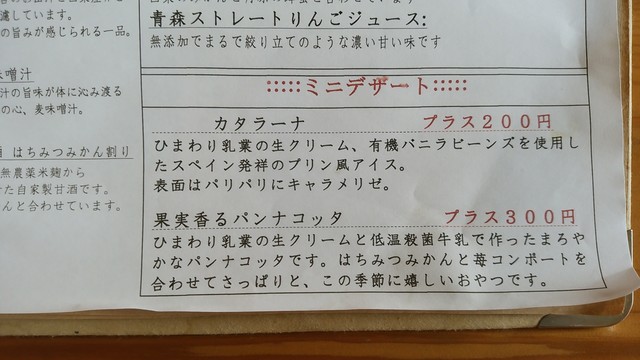 濾しています。
の旨みが感じられる一品。
味噌汁
汁の旨味が体に沁み渡る
の心、麦味噌汁。
はちみつみかん割り
無農薬米麹から
た自家製甘酒です。
んと合わせています。
青森ストレートりんごジュース:
無添加でまるで絞り立てのような濃い甘い味です
:::::ミニデザート:::::
カタラーナ プラス200円
ひまわり乳業の生クリーム、有機バニラビーンズを使用し
たスペイン発祥のプリン風アイス。
表面はパリパリにキャラメリゼ。
果実香るパンナコッタ プラス300円
ひまわり乳業の生クリームと低温殺菌牛乳で作ったまろや
かなパンナコッタです。はちみつみかんと苺コンポートを
合わせてさっぱりと、この季節に嬉しいおやつです。